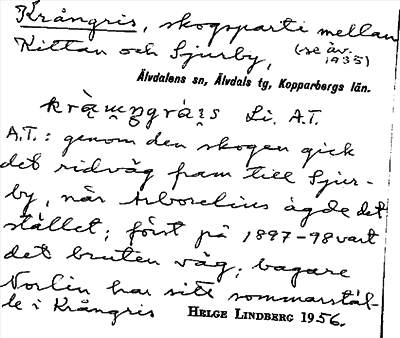 Krångris, skogsparti mellan
Kittan och Sjurby, (se äv. 1935)
Älvdalens sn, Älvdals tg, Kopparbergs län.
Li. A.T.
A.T.: genom den skogen gick
det ridväg fram till Sjur-
by, när Arborelius ägde det
stället; först på 1897-98 vart
det bruten väg; bagare
Norlin har sitt sommarstäl-
le i Krångris HELGE LINDBERG 1956.